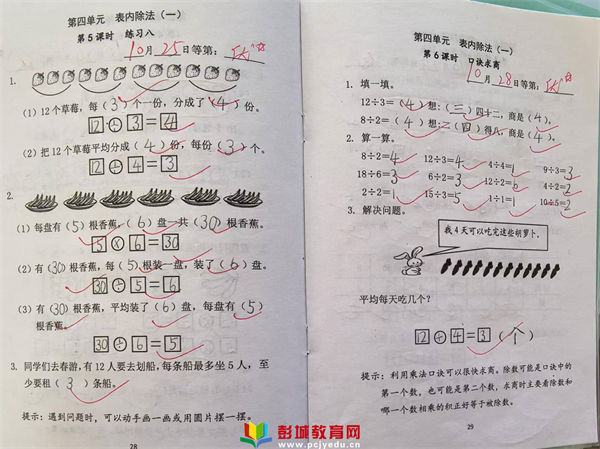 第四单元 表内除法（一）
第5课时 练习八
10月25日等第：
1.
（1）12个草莓，每（3）个一份，分成了（4）份。
12÷3=4
（2）把12个草莓平均分成（4）份，每份（3）个。
12÷4=3
2.
（1）每盘有（5）根香蕉，（6）盘一共（30）根香蕉。
5×6=30
（2）有（30）根香蕉，每（5）根装一盘，装了（6）盘。
30÷5=6
（3）有（30）根香蕉，平均装了（6）盘，每盘有（5）
根香蕉。
30÷6=5
3. 同学们去春游，有12人要去划船，每条船最多坐5人，至
少要租（3）条船。
提示：遇到问题时，可以动手画一画或用圆片摆一摆。
28
第四单元 表内除法（一）
第6课时 口诀求商
10月28日等第：
1. 填一填。
12÷3=（4）想：（三）四十二，商是（4）。
8÷2=（4）想：二（四）得八，商是（4）。
2. 算一算。
8÷2=4 12÷3=4 4÷4=1 9÷3=3
18÷6=3 6÷2=3 12÷2=6 4÷2=2
2÷2=1 15÷3=5 1÷1=1 10÷5=2
3. 解决问题。
我4天可以吃完这些胡萝卜。
平均每天吃几个？
12÷4=3（个）
提示：利用乘法口诀可以很快求商。除数可能是口诀中的
第一个数，也可能是第二个数，求商时主要看除数和
哪一个数相乘的积正好等于被除数。
29
彭城教育网
www.pcjyedu.cn